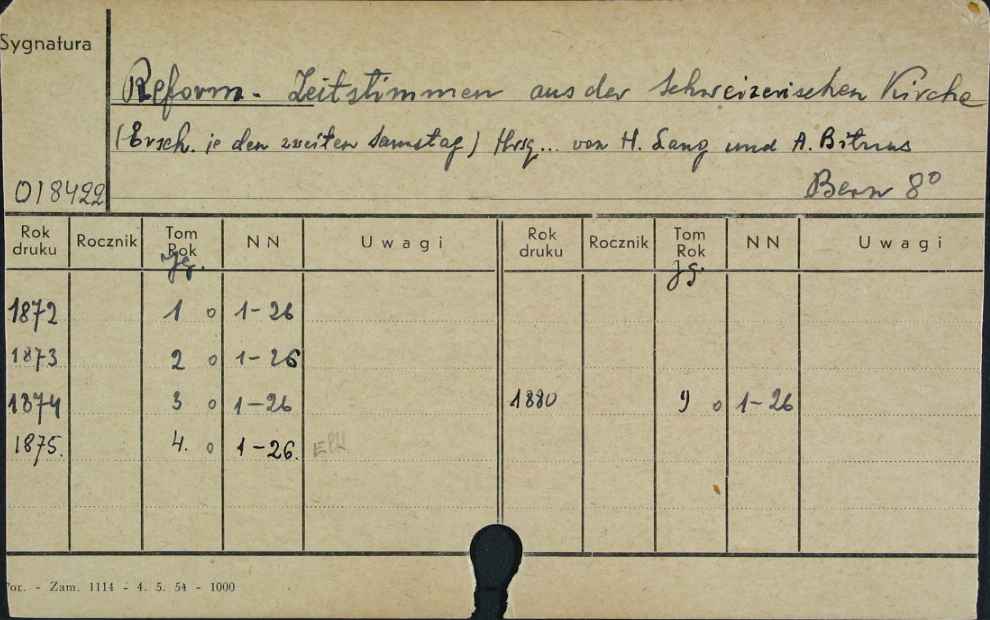 Sygnatura
Reform. Zeitstimmen aus der schweizerischen Kirche
(Ersch. je den zweiten Samstag) Hrsg... von H. Lang und A. Bitzius
018422
Bern 8º
Rok druku Rocznik Tom Rok NN Uwagi Rok druku Rocznik Tom Rok NN Uwagi
Jg. Jg.
1872 1 o 1-26
1873 2 o 1-26
1874 3 o 1-26 1880 9 o 1-26
1875. 4. o 1-26.
or. - Zam. 1114 - 4. 5. 54 - 1000